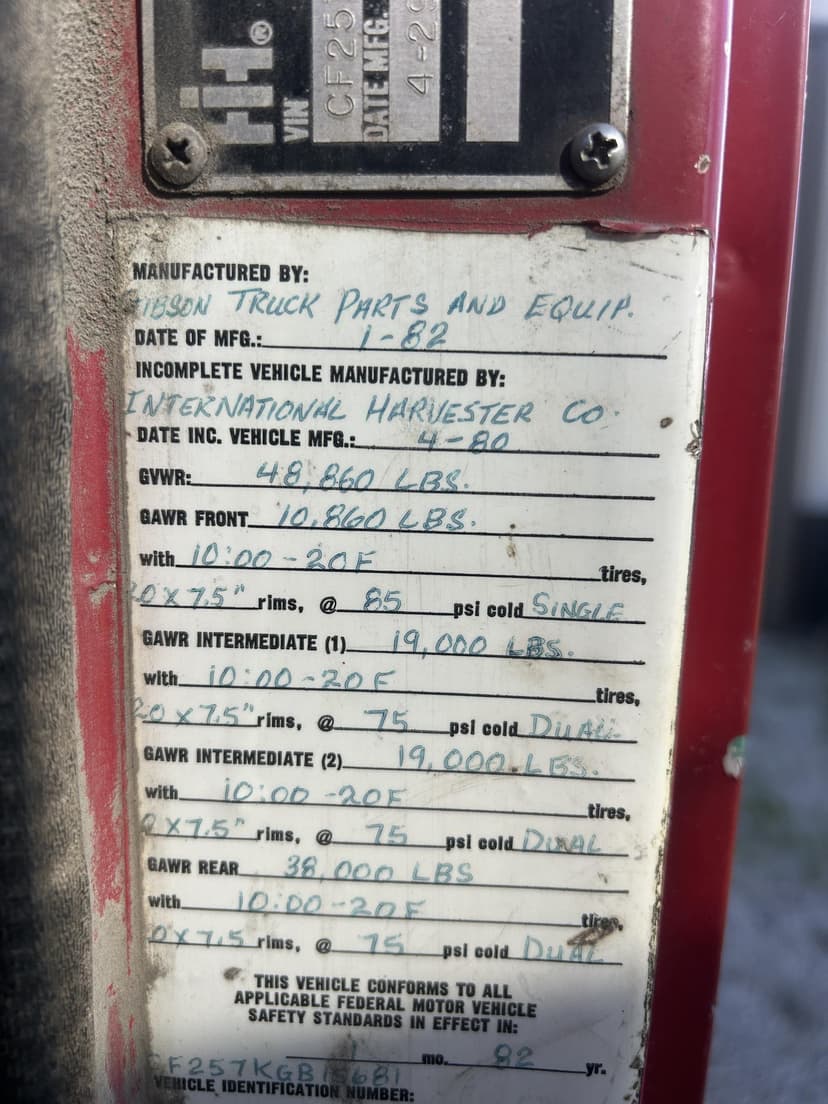 IH®
VIN CF25
DATE MFG. 4-2
MANUFACTURED BY:
GIBSON TRUCK PARTS AND EQUIP.
DATE OF MFG.: 1-82
INCOMPLETE VEHICLE MANUFACTURED BY:
INTERNATIONAL HARVESTER CO.
DATE INC. VEHICLE MFG.: 4-80
GVWR: 48,860 LBS.
GAWR FRONT 10,860 LBS.
with 10:00-20F tires,
20X7.5" rims, @ 85 psi cold SINGLE
GAWR INTERMEDIATE (1) 19,000 LBS.
with 10:00-20F tires,
20X7.5" rims, @ 75 psi cold DUAL
GAWR INTERMEDIATE (2) 19,000 LBS.
with 10:00-20F tires,
0X7.5" rims, @ 75 psi cold DUAL
GAWR REAR 38,000 LBS
with 10:00-20F tires,
0X7.5 rims, @ 75 psi cold DUAL
THIS VEHICLE CONFORMS TO ALL
APPLICABLE FEDERAL MOTOR VEHICLE
SAFETY STANDARDS IN EFFECT IN:
1 mo. 82 yr.
CF257KGB15681
VEHICLE IDENTIFICATION NUMBER: